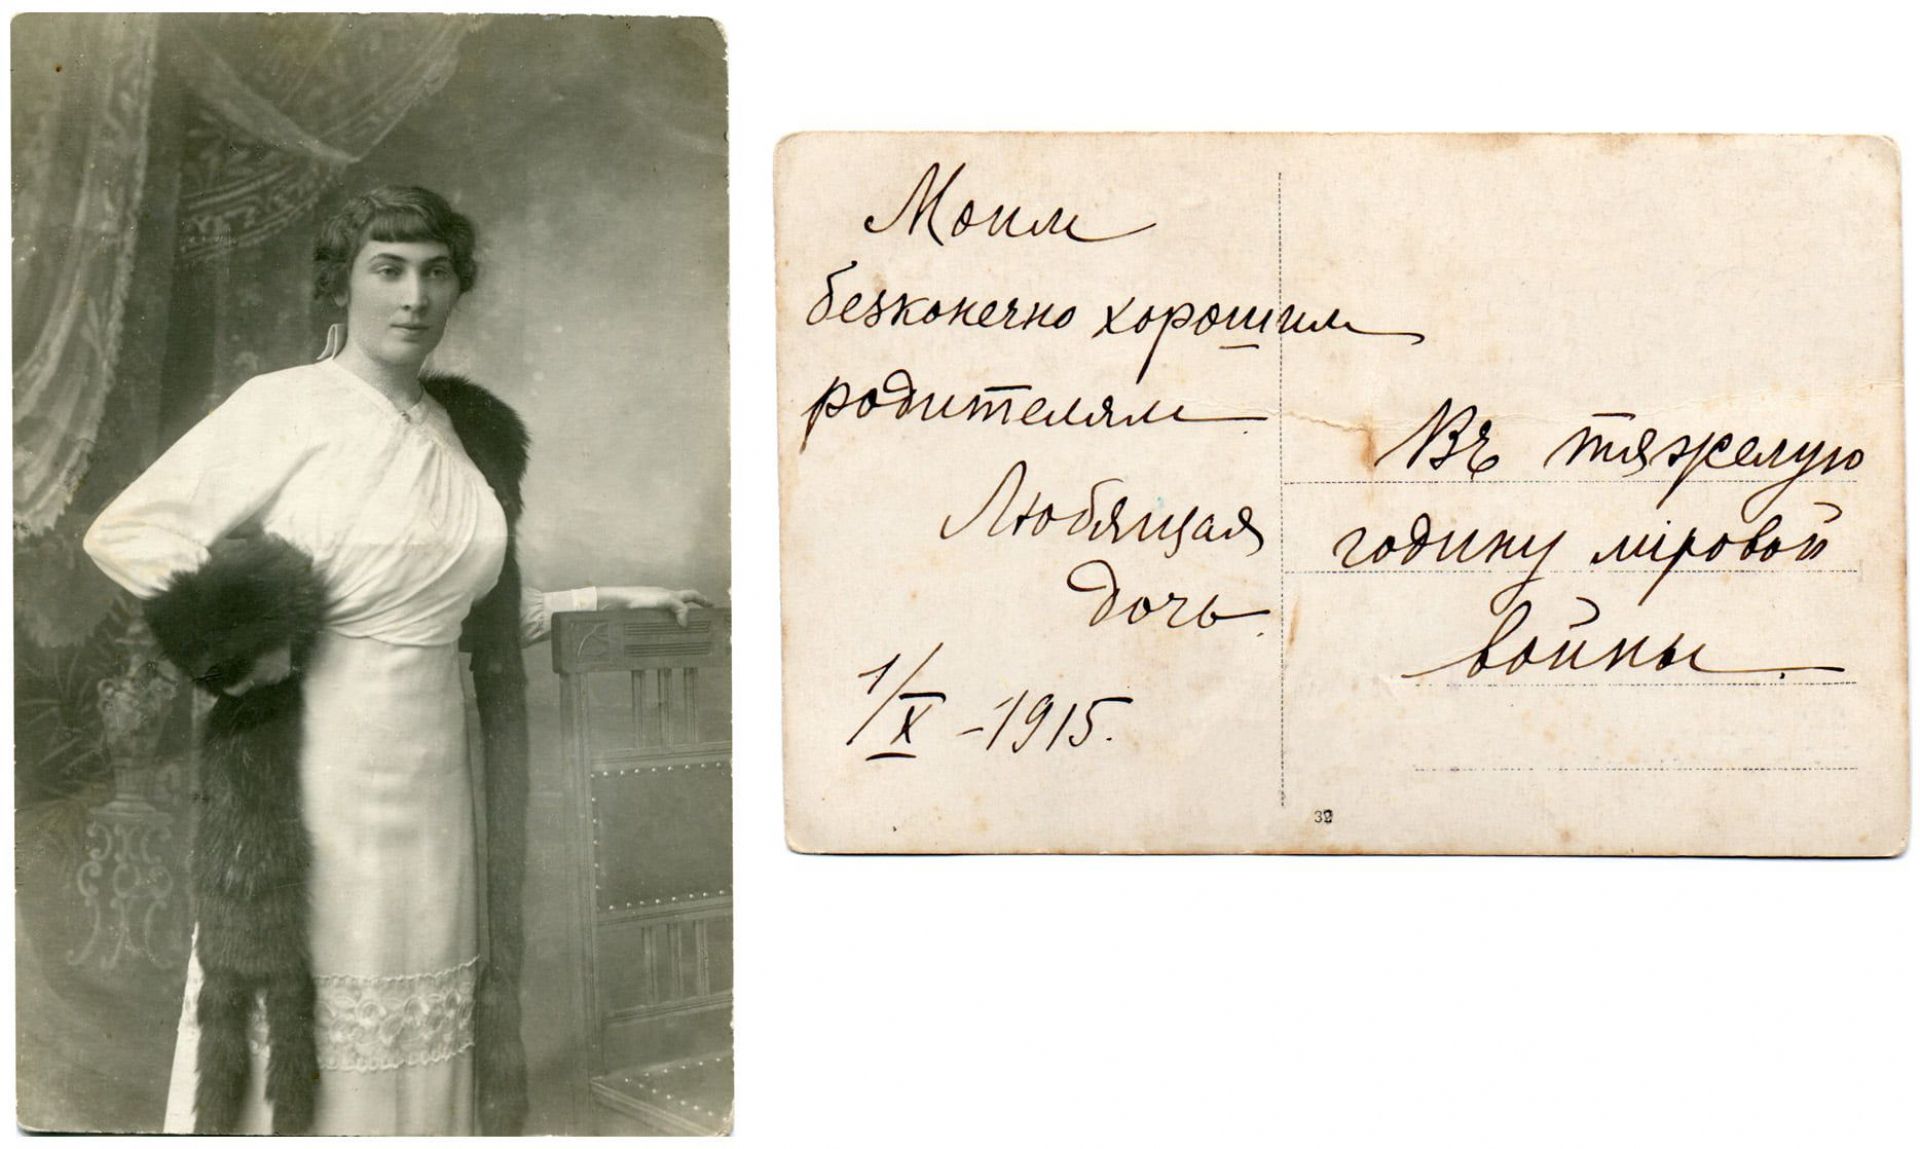 Моим
безконечно хорошим
родителям.
Любящая
дочь.
1/X - 1915.
Въ тяжелую
годину міровой
войны.
39